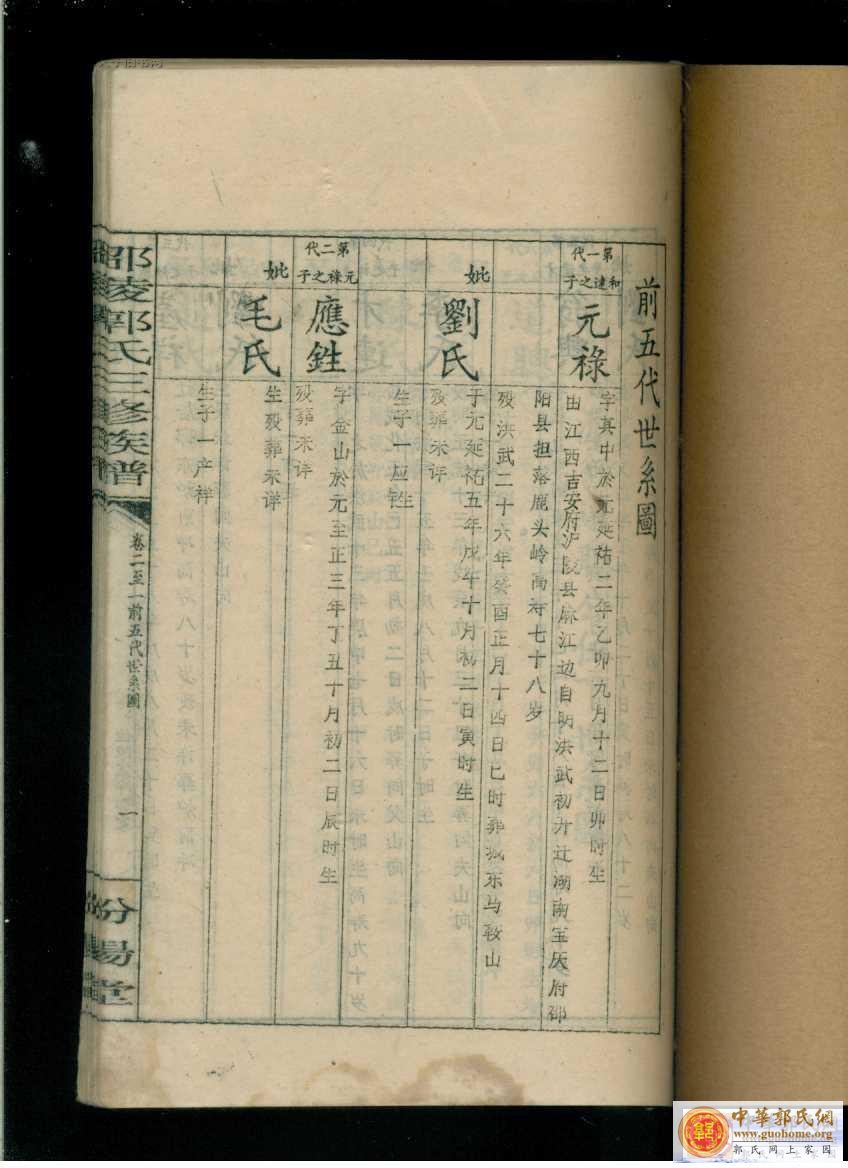 前五代世系圖
第一代
和達之子
元祿
字真中於元延祐二年乙卯九月十二日卯时生
由江西吉安府泸陵县麻江边自明洪武初力迁湖南宝庆府邵
阳县担落鹿头岭高寿七十八岁
殁洪武二十六年癸酉正月十四日巳时葬城东马鞍山
妣
劉氏
于元延祐五年戊午十月初二日寅时生
殁葬未详
生子一应甡
第二代
元祿之子
應甡
字金山於元至正三年丁丑十月初二日辰时生
殁葬未详
妣
毛氏
生殁葬未详
生子一产祥
邵陵郭氏三修族譜
卷二至一前五代世系圖
一
汾陽堂
中華郭氏網
www.guohome.org
郭氏网上家园